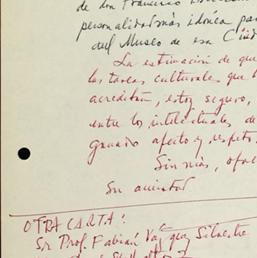 de don Francisco
personalidad más idónea pa
del Museo de esa Ciud
La estimación de que
las tareas culturales que
acreditan, estoy seguro,
entre los intelectuales de
granado afecto y respeto.
Sin más,
Su amistad
OTRA CARTA:
Sr Prof. Fabián Vázquez Silvestre